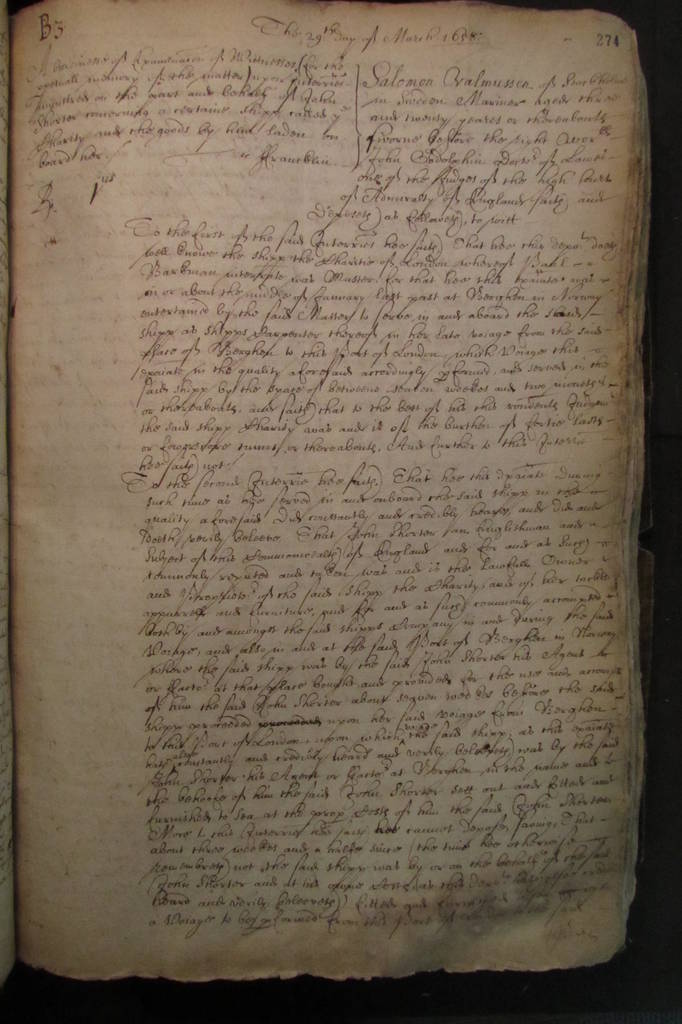 B3
The 29th day of March 1658:
274
A businesse of Examination of Wittnesses for the
perpetuall memory of the matter upon Interries
ministred on the part and behalfe of John
Shorter concerning a certaine shipp called ye
Charity and the goods by him laden on
board her
Francklin
Salomon Walmussen of
in Sweden Mariner aged three
and twenty yeares or thereabouts
sworne before the right Worll
John Godolphin doctor of Lawes
one of the Judges of the high Court
of Admiralty of England saith and
deposeth as followeth, to witt
Rp. 1us
To the first of the said Interries hee saith That hee this depot
well knowe the shipp the Charitie of London whereof
Barkman interrate was Master for that hee this was
in or about the middle of January last past at Berghen in Norway
entertained by the said Master to serve in and aboard the said
shipp as shipps Carpenter thereof in her late voiage from the said
place of Berghen to this Port of London, which Voiage this
in the quality aforesaid accordingly performed, and served in the
said shipp by the space of betweene seaven weekes and two moneths
or thereabouts, and saith that to the best of his this rendents Judgmt
the said shipp Charity was and is of the burthen of fortie lasts
or tunns or thereabouts, And further to this Interrie
hee saith not./
To the second Interrie hee saith That hee this during
such time as hee served in and onboard the said shipp in the
quality aforesaid Did constantly and credibly heare, and did and
doeth verily beleeve That John Shorter an Englishman and a
subject of this Commonwealth of England and for and as such
commonly reputed and taken was and is the lawfull Owner
and Proprietor of the said shipp the Charity, and of her tackle
apparrell and furniture, and for and as such commonly accompted
both by and amongst the said shipps Company in and during the said
Voiage, and allso in and at the said Port of Berghen in Norway
where the said shipp was by the said John Shorter his Agent
or Factor at that place bought and provided for the use and accompt
of him the said John Shorter about seaven weekes before the said
shipp proceeded upon her said voiage from Berghen
to this Port of London, upon which the said shipp, as this
hath constantly and credibly heard and verily beleeveth was by the said
John Shorter his Agent or Factor at Berghen in the name and to
the behoofe of him the said John Shorter sett out and fitted and
furnished to Sea at the proper Costs of him the said John Shorter
More to this Interrie hee saith hee cannot depose, saving That
about three weekes and a halfe since (the time hee otherwise
remembreth) not the said shipp was by or on the behalfe of the said
John Shorter and at his proper Costs as this
heard and verily beleeveth fitted and furnished
a Voiage to bee performed from this Port of